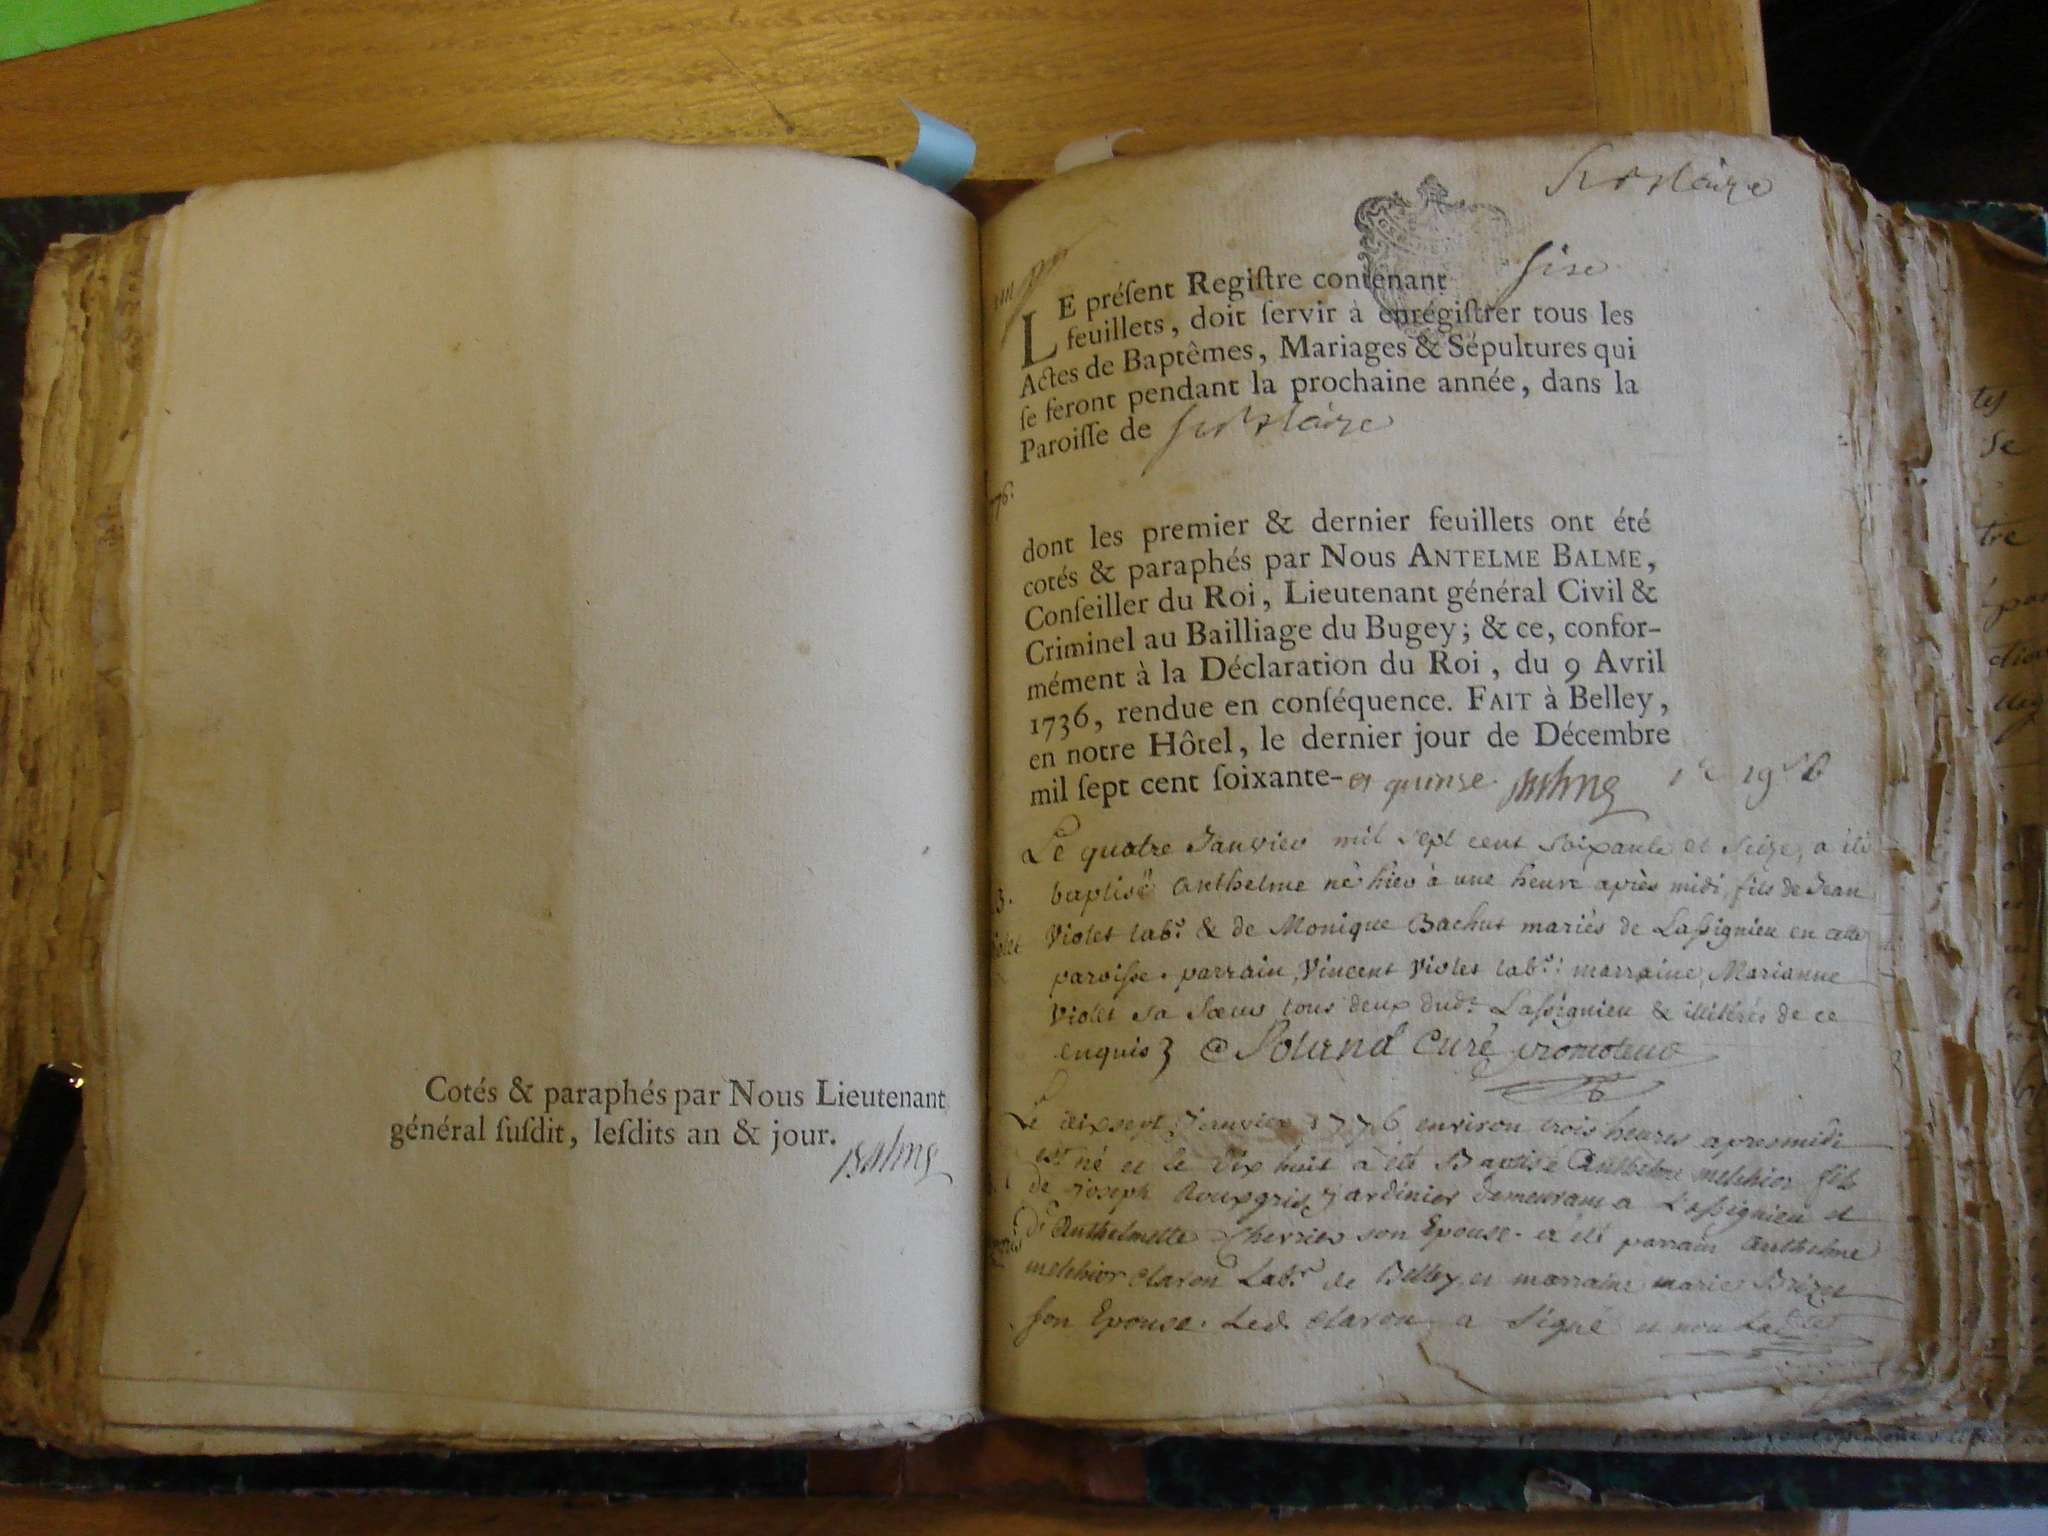 Cotés & paraphés par Nous Lieutenant
général ſuſdit, leſdits an & jour.
Balme
LE préſent Regiſtre contenant sise
feuillets, doit ſervir à enrégiſtrer tous les
Actes de Baptêmes, Mariages & Sépultures qui
ſe feront pendant la prochaine année, dans la
Paroiſſe de
dont les premier & dernier feuillets ont été
cotés & paraphés par Nous ANTELME BALME,
Conſeiller du Roi, Lieutenant général Civil &
Criminel au Bailliage du Bugey; & ce, confor-
mément à la Déclaration du Roi, du 9 Avril
1736, rendue en conſéquence. FAIT à Belley,
en notre Hôtel, le dernier jour de Décembre
mil ſept cent ſoixante- et quinse. Balme
Le quatre Janvier mil sept cent soixante et seize, a été
baptisé Anthelme né hier à une heure après midi, fils de Jean
Violet labr. & de Monique Bachut mariés de Laſsignieu en cette
paroiſse. parrain, Vincent Violet labr. marraine, Marianne
Violet sa sœur tous deux dudt. Laſsignieu & illitérés de ce
enquis Curé promoteur
Le dixsept Janvier 1776 environ trois heures apresmidi
est né et le dix huit a été Baptisé Anthelme melchior fils
de joseph Rouxgris jardinier demeurant a Laſsignieu et
d'Anthelmette son Epouse. a été parain Anthelme
melchior claron Labr. de Belley et marraine marie
son Epouse. Led. claron a signé et non